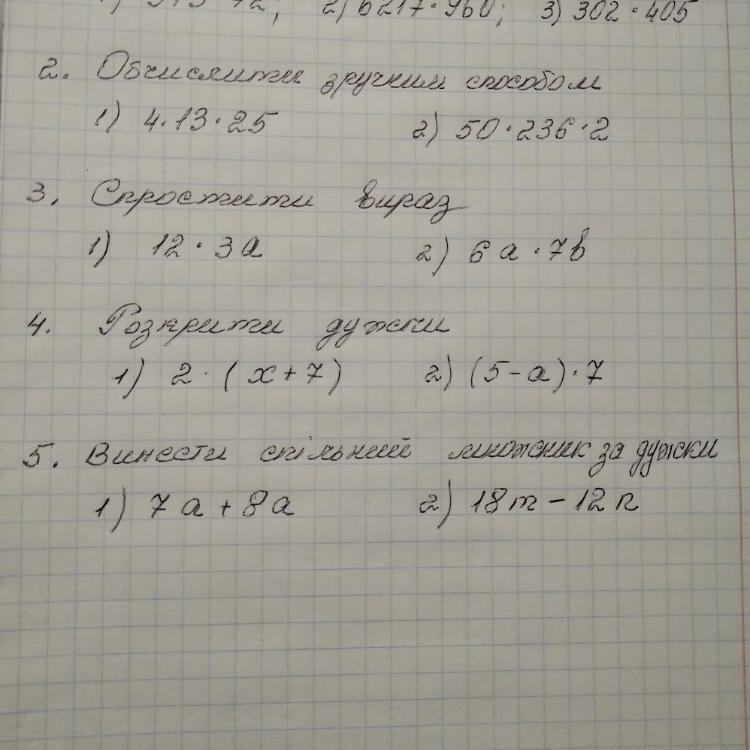 2) 6217·960; 3) 302·405
2. Обчислити зручним способом
1) 4·13·25 2) 50·236·2
3. Спростити вираз
1) 12·3a 2) 6a·7b
4. Розкрити дужки
1) 2·(x+7) 2) (5-a)·7
5. Винести спільний множник за дужки
1) 7a+8a 2) 18m-12n